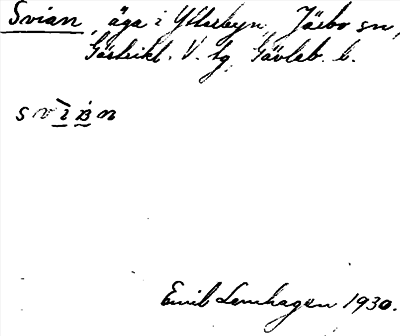 Svian, äga i Ytterbyn, Järbo sn,
Gästrikl. V. tg, Gävleb. l.
Emil Lenhagen 1930.